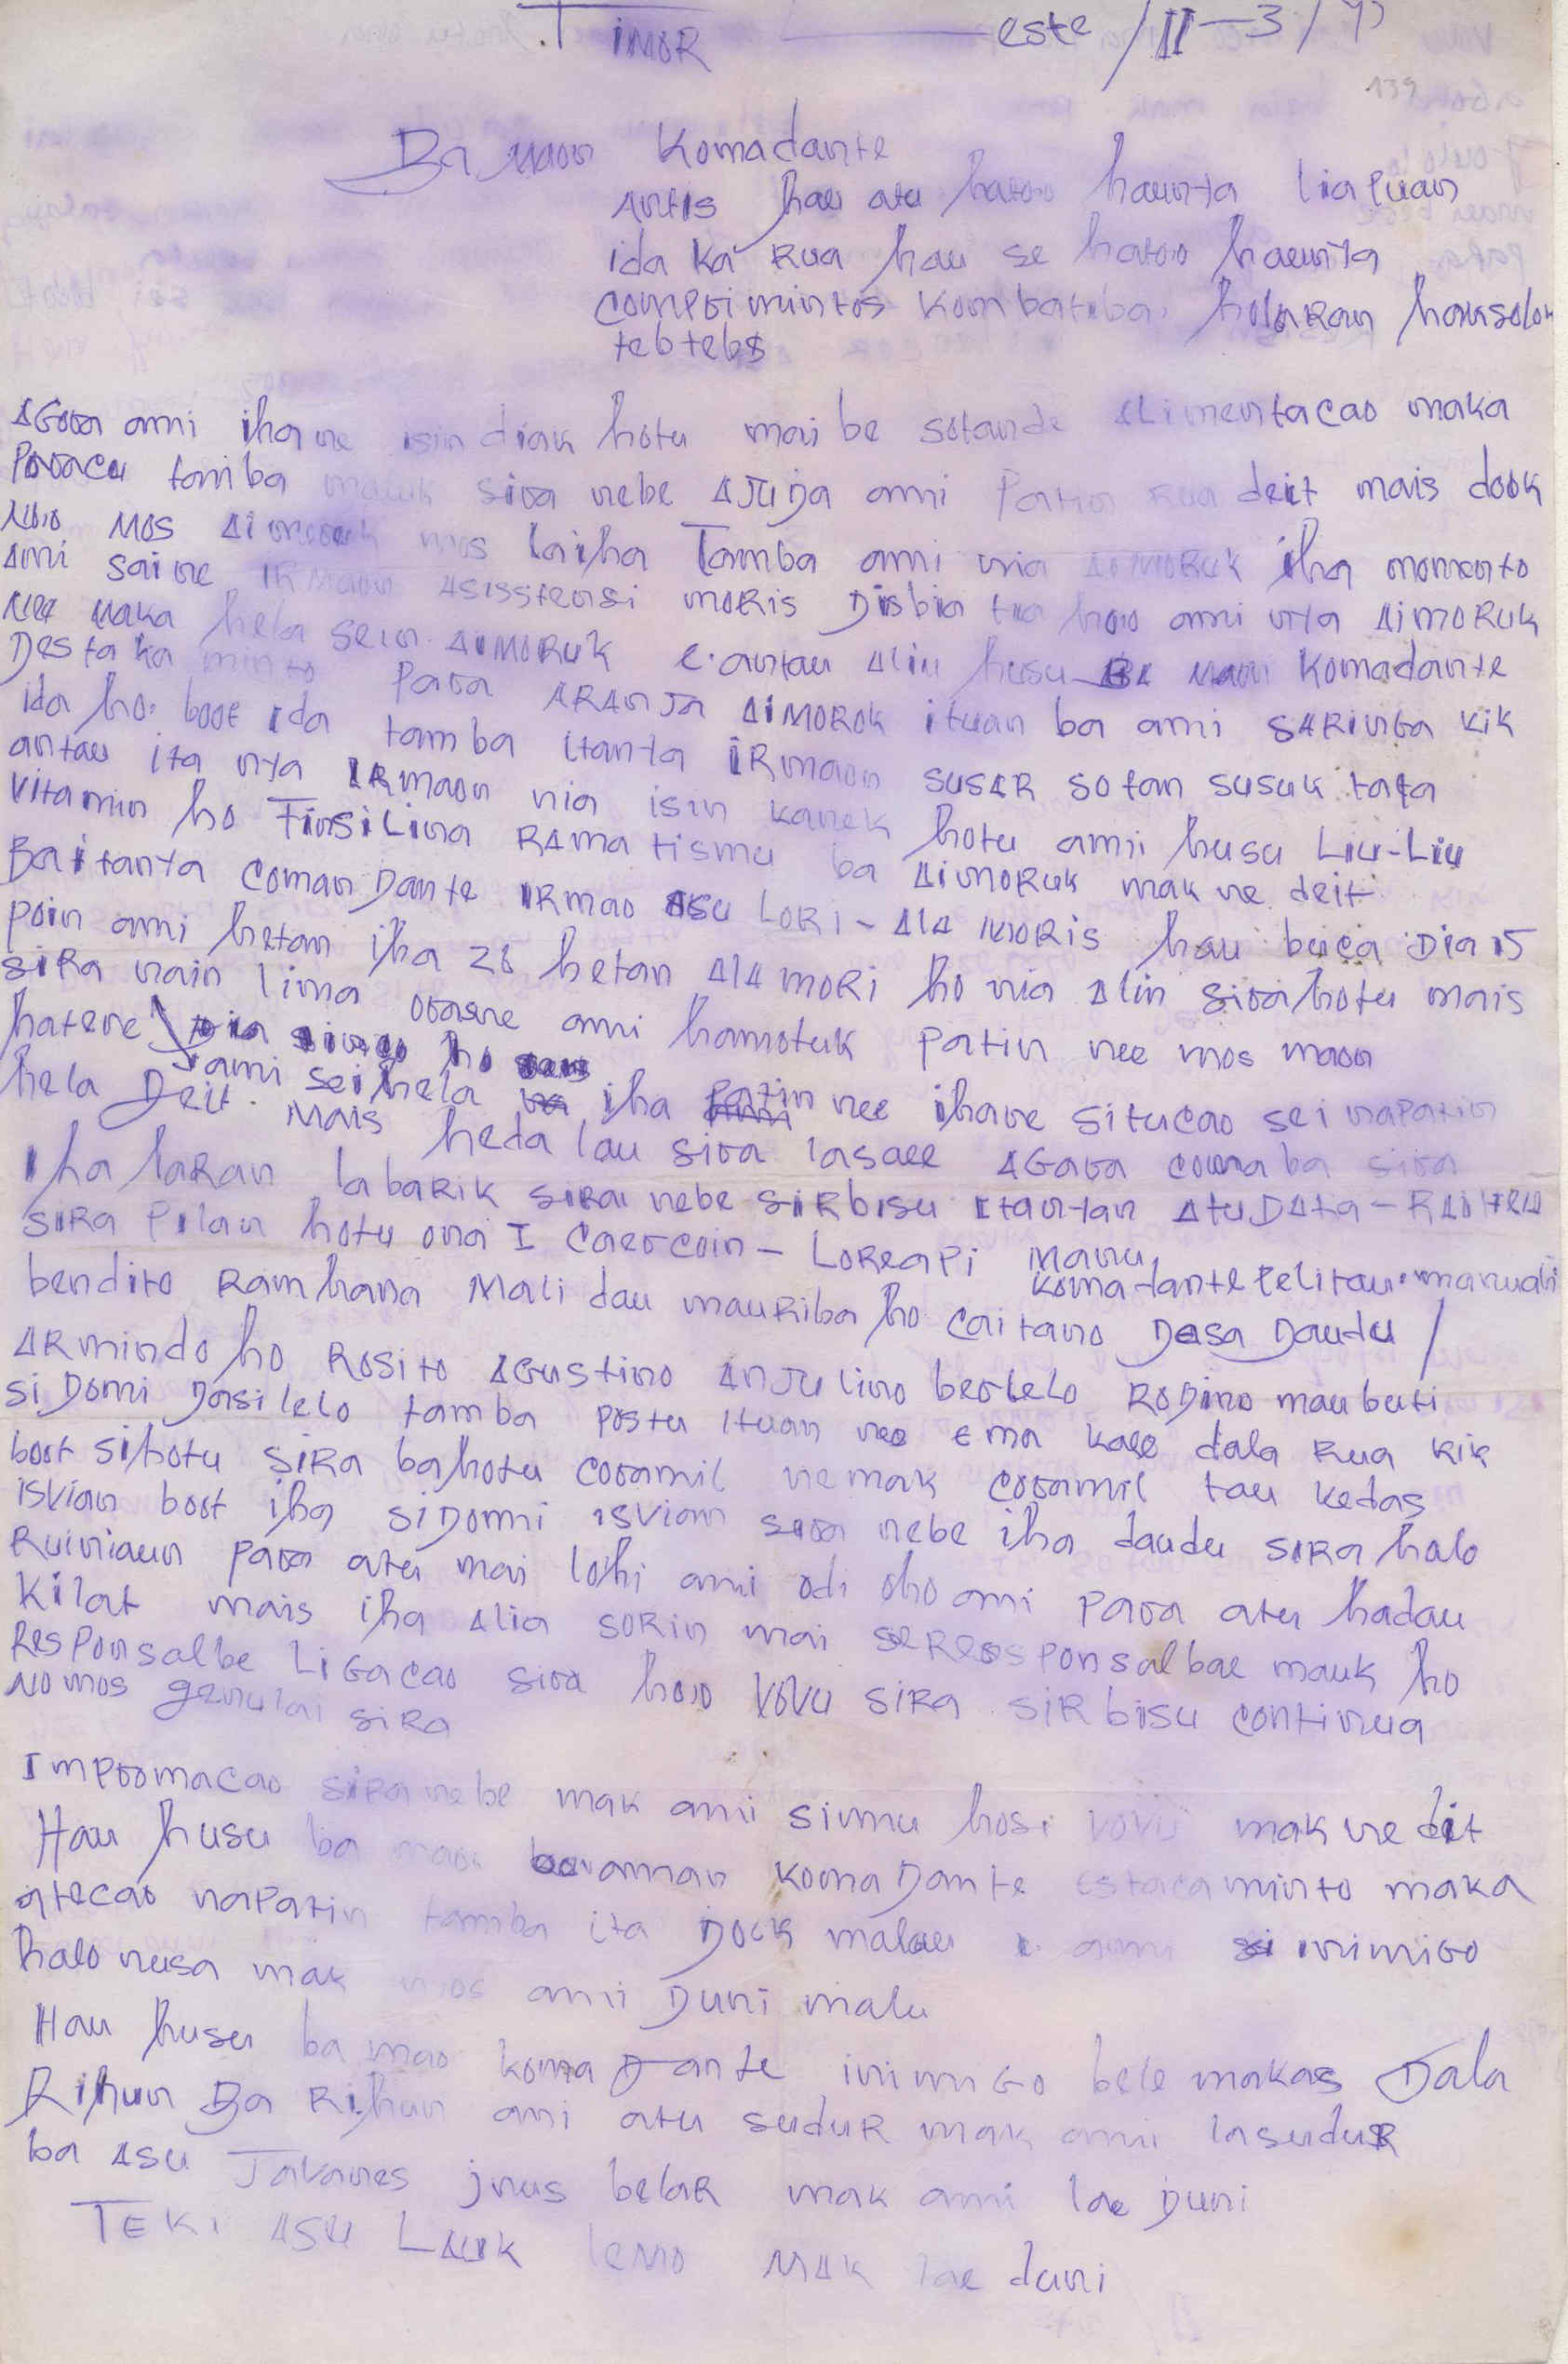 Timor ——— este / II - 3 / 93
139
Ba Maon Komadante
Antis hau atu hatoo haunta liapuan
ida ka rua hau se hatoo haunta
comprimintos kombatiba, holaran hausolok
tebtebs
Agora ami ihane isin diak hotu mai be sotande alimentacao maka
Poracu tamba mauk sira nebe ajuda ami Patin rua deit mais dook
Noo mos aimoruk mos laiha Tamba ami nia aimoruk iha momento
Ami saine irmaon asisstensi moris Disbia tia hoo ami nya aimoruk
Nee maka hela sein aimoruk e. antau aliu husu Ba Maon Komadante
Desta ka minto Para aranja aimorok ituan ba ami saringa kik
ida ho boot ida tamba itanta irmaon susar sotan susuk tata
antau ita nya irmaon nia isin kanek hotu amii husu Liu-Liu
Vitamin ho Finsilina ramatismu ba aimoruk mak ne deit
Baitanya Comandante irmao Asu Lori - Ala moris hau buca Dia 15
poin ami hetan iha 28 hetan ala mori ho nia alin sira hotu mais
sira nain lima orasne ami hamotuk patin nee mos maon
hatene ami seihela iha Patin nee ihane situcao sei napatin
hela Deit. Mais heda lau sira lasaee Agara coma ba sira
Iha laran labarik sirai nebe sirbisu itantan atu Data - Raitela
sira Pilan hotu ona I Caercoin - Loreapi Manu
Komadante Pelitau manuabi
bendito Ramhana Mali dau mauriba ho caitano Dasa Daudu /
Armindo ho Rosito Agustino Anjulino bertelo Rodino maubuti
si Domi Dasilelo tamba postu ituan nee ema kaee dala rua kik
boot sihotu sira bahotu coramil nemak coramil tau kedas
isvian boot iha si Domi isvian sira nebe iha daudu sira halo
Ruiniaun para atu mai lohi ami odi oho ami para atu hadau
kilat mais iha alia sorin mai se responsalbae mauk ho
Responsalbe Ligacao sira hoo vovu sira sirbisu continua
No mos genulai sira
Impromacao sira nebe mak ami simu hosi vovu mak ne deit
Hau husu ba maon komadante estacaminto maka
atecao napatin tamba ita Dock malau ami inimigo
halo nusa mak mos amii Duni malu
Hau husu ba mao komadante inimigo bele makas Dala
Rihun Ba Rihun ami atu sudur mak ami lasudur
ba Asu Javanes jnus belar mak ami lae Duni
Teki Asu Lauk lemo mak lae duni